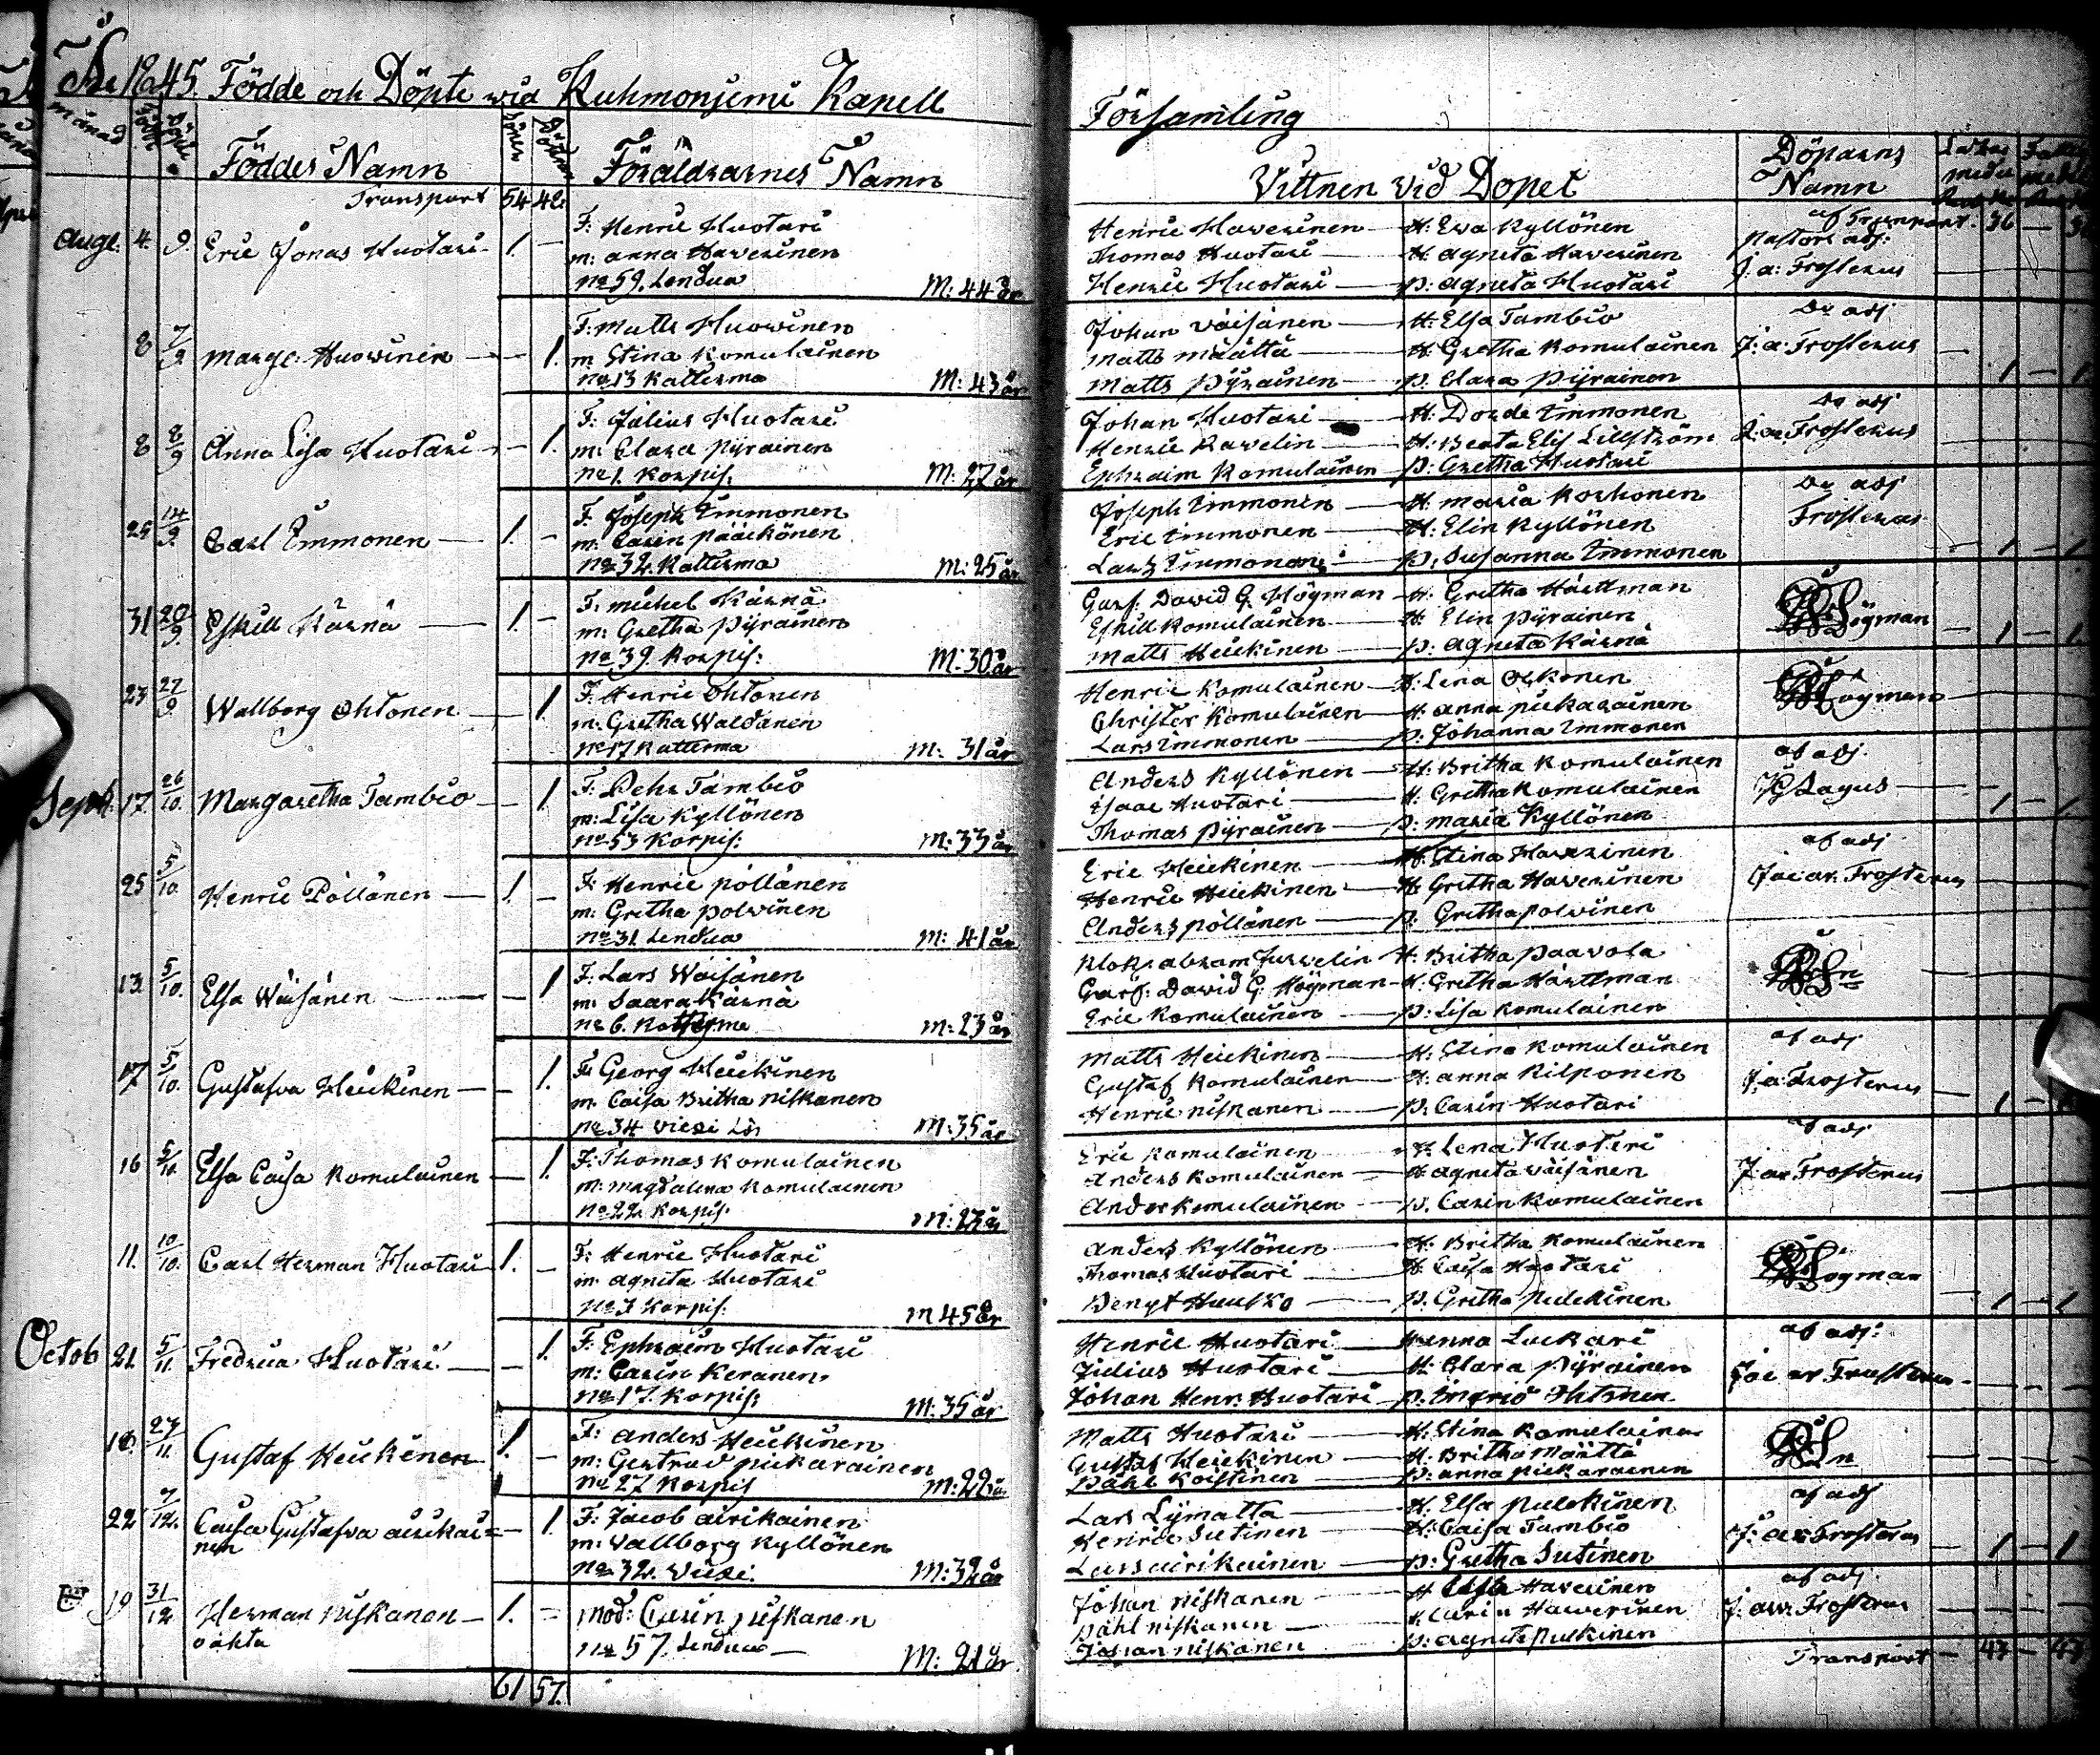 1845. Födde och Döpte wid Kuhmonjemi Kapell Församling
månad Född Döpte Föddes Namn Söner Döttrar Föräldrarnes Namn Vittnen vid Dopet Döparens Namn
Transport 54 42
af Transport. 36
Augt. 4. 9. Eric Jonas Huotari 1. — F: Henric Huotari Henric Haverinen — H: Ewa Kyllönen Pastors adj:
m: Anna Haverinen Thomas Huotari — H: Agneta Haverinen J. a: Frosterus
No 59. Lendua M: 44 år Henric Huotari — p: Agneta Huotari
8 7/9 Margt: Huovinen — 1. F: Matts Huovinen Johan Väisänen — H: Elsa Tambio adj
m Stina Komulainen Matts Määttä — H: Gretha Komulainen J: a: Frosterus
No 13 Katterma M: 43 år Matts Pyrainen — p. Clara Pyrainen 1 — 1
8 8/9 Anna Lisa Huotari — 1. F: Julius Huotari Johan Huotari — H: Immonen adj
m: Clara Pyrainen Henric Ravelin — H: Beata Elis Lillström J: a: Frosterus
No 1. Korpis. M: 27 år Ephraim Komulainen — p: Gretha Huotari
25 14/9 Carl Immonen — 1. — F. Joseph Immonen Joseph Immonen — H: Maria Korhonen adj
m: Carin Pääckönen Eric Immonen — H: Elin Kyllönen Frosterus
No 32. Katterma M: 25 år Lars Immonen — p: Susanna Immonen — 1 — 1
31 20/9 Eskill Kärnä — 1. — F: Michel Kärnä Garf. David G. Högman — H: Gretha Härttman Högman
m: Gretha Pyrainen Eskill Komulainen — H: Elin Pyrainen
No 39. Korpis: M: 30 år Matts Heickinen — p: Agneta Kärnä — 1 — 1
23 27/9 Wallborg Ohtonen — 1. F: Henric Ohtonen Henric Komulainen — H: Lena Ockonen Högman
m: Gretha Waldanen Christer Komulainen — H: Anna Pickarainen
No 17 Katterma M: 31 år Lars Immonen — p: Johanna Immonen
Sept. 17 26/10. Margaretha Tambio — 1. F: Pehr Tambio Anders Kyllönen — H: Britha Komulainen af adj.
m: Lisa Kyllönen Isaac Huotari — H: Gretha Komulainen Lagus
No 53 Korpis: M: 33 år Thomas Pyrainen — p: Maria Kyllönen — 1 — 1
25 5/10 Henric Pöllänen — 1. — F: Henric Pöllänen Eric Heickinen — H: Stina Haverinen af adj
m: Gretha Polvinen Henric Heickinen — H: Gretha Haverinen Frosterus
No 31. Lendua M: 41 år Anders Pöllänen — p. Gretha Polvinen
13. 5/10. Elsa Wäisänen — 1. F: Lars Wäisänen Klok: Abram Jurvelin H: Britha Paavola
m: Saara Kärnä Garf: David G. Högman — H: Gretha Härttman
No 6. Katterma M: 23 år Eric Komulainen — p: Lisa Komulainen
17 5/10. Gustafva Heickinen — 1. F: Georg Heickinen Matts Heickinen — H: Stina Komulainen af adj
m. Caisa Britha Niskanen Gustaf Komulainen — H: Anna Kilponen J. a: Frosterus
No 34 Viexi M: 35 år Henric Niskanen — p. Carin Huotari — 1 —
16 5/10 Elsa Caisa Komulainen — 1. F: Thomas Komulainen Eric Komulainen — H: Lena Huotari af adj
m: Magdalena Komulainen Anders Komulainen — H Agneta Väisänen Frosterus
No 22 Korpis. Anders Komulainen — p. Carin Komulainen
11. 10/10. Carl Herman Huotari 1. — F: Henric Huotari Anders Kyllönen — H: Britha Komulainen Högman
m. Agneta Huotari Thomas Huotari — H: Caisa Huotari
Korpis. M 45 år Bengt — p. Gretha Pulckinen — 1 — 1
Octob 21. 5/11. Fredrica Huotari — 1. F: Ephraim Huotari Henric Huotari — Anna Luckari af adj:
m: Carin Keranen Julius Huotari — H: Clara Pyrainen Frosterus
No 17. Korpis: M: 35 år Johan Henr. Huotari — p. Ingrid
18. 27/11. Gustaf Heickinen 1. — F: Anders Heickinen Matts Huotari — H: Stina Komulainen
m: Gertrud Pickarainen Gustaf Heickinen — H. Britha Määttä
No 27 Korpis M: 22 år Påhl Koistinen — p: Anna Pickarainen
22 7/12. Caisa Gustafva Airikai= — 1. F: Jacob Airikainen Lars Lymatta — H. Elsa Pulckinen af adj
nen m: Wallborg Kyllönen Henric Sutinen — H: Caisa Tambio Frosterus
No 32. Viexi. M: 32 år Lars Airikainen — p: Gretha Sutinen — 1 — 1
19 31/12 Herman Niskanen — 1. — Mod: Carin Niskanen Johan Niskanen — H Haverinen af adj.
oäkta No 57. Lendua — M: 21 år Påhl Niskanen — H Carin Haverinen Frosterus
Johan Niskanen — p: Agneta Pulkinen
61 57. Transport — 47 — 47